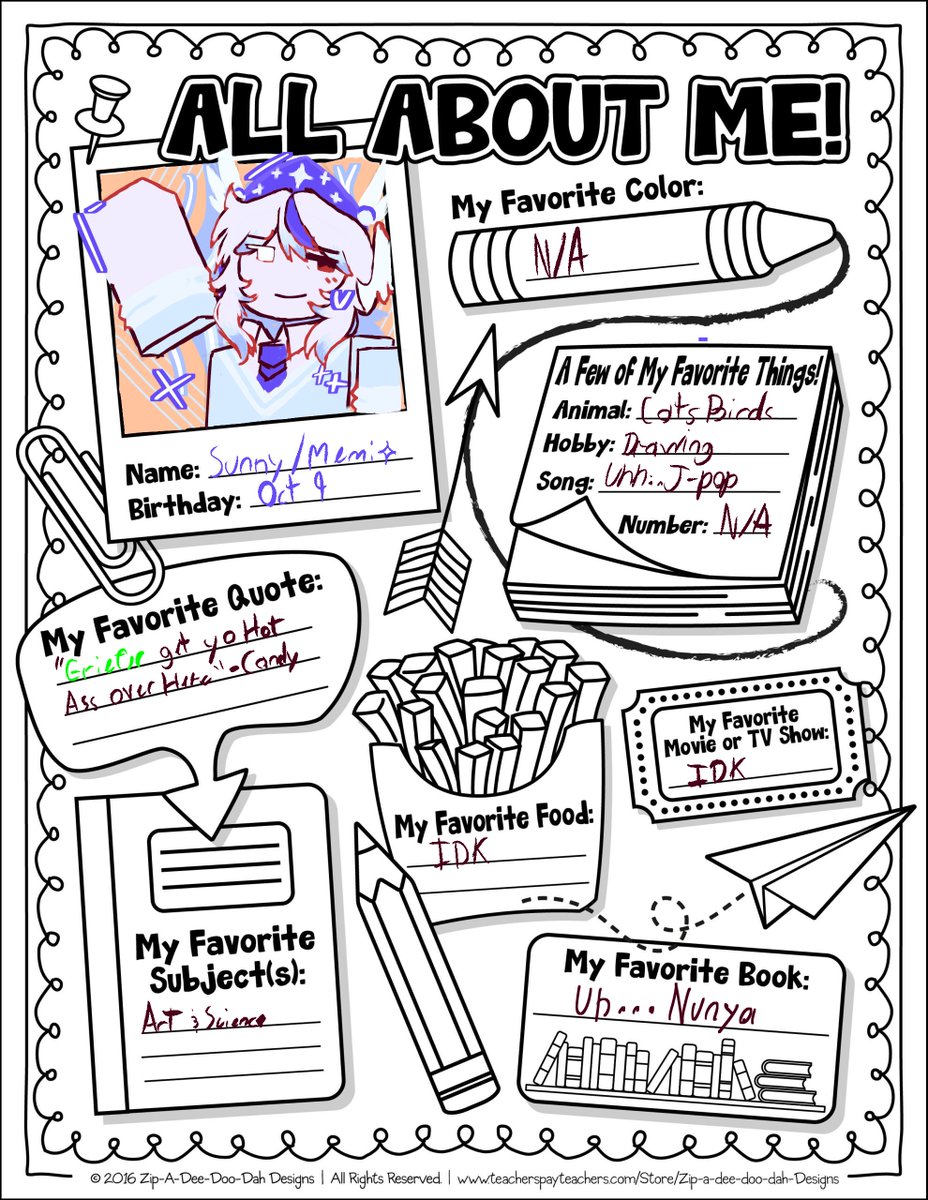 ALL ABOUT ME!
My Favorite Color:
N/A
A Few of My Favorite Things!
Animal: Cats Birds
Hobby: Drawing
Song: Uhh.. J-pop
Number: N/A
Name: Sunny/Memi
Birthday: Oct 9
My Favorite Quote:
"Griefer get yo Hot
Ass over Here" - Candy
My Favorite
Movie or TV Show:
IDK
My Favorite Food:
IDK
My Favorite
Subject(s):
Art & Science
My Favorite Book:
Uh... Nunya
© 2016 Zip-A-Dee-Doo-Dah Designs | All Rights Reserved. | www.teacherspayteachers.com/Store/Zip-a-dee-doo-dah-Designs